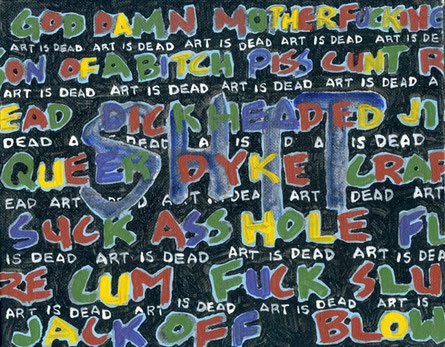 GOD DAMN MOTHERFUCKING
ART IS DEAD ART IS DEAD ART IS DEAD ART IS DEAD
ON OF A BITCH PISS CUNT R
ART IS DEAD ART IS DEAD ART IS DEAD ART IS DEAD
EAD DICKHEADED JI
DEAD IS DEAD ART IS DEAD
SHIT
QUEER DYKE CRAP
DEAD ART DEAD ART DEAD ART DEAD
SUCK ASSHOLE FL
IS DEAD ART IS DEAD ART IS DEAD ART IS
RE CUM FUCK SLU
ART IS DEAD ART IS DEAD ART IS DEAD ART IS
JACK OFF BLOW